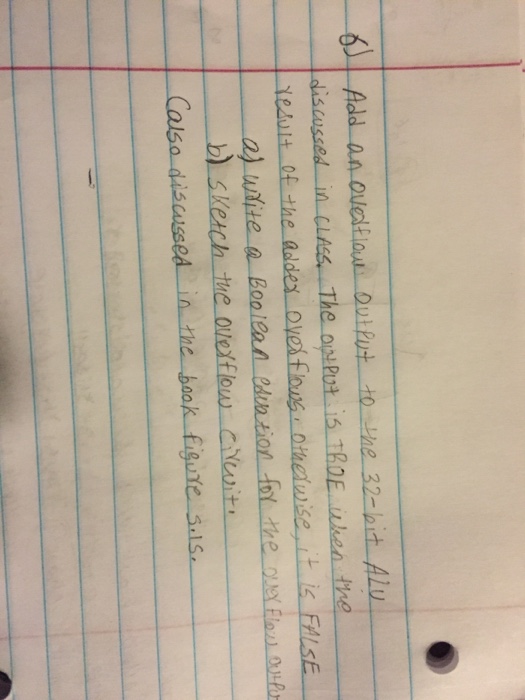 6) Add an overflow output to the 32-bit ALU
discussed in class. The output is TRUE when the
result of the adder overflows. otherwise, it is FALSE
a) write a Boolean equation for the overflow output
b) sketch the overflow circuit.
(also discussed in the book figure 5.15.